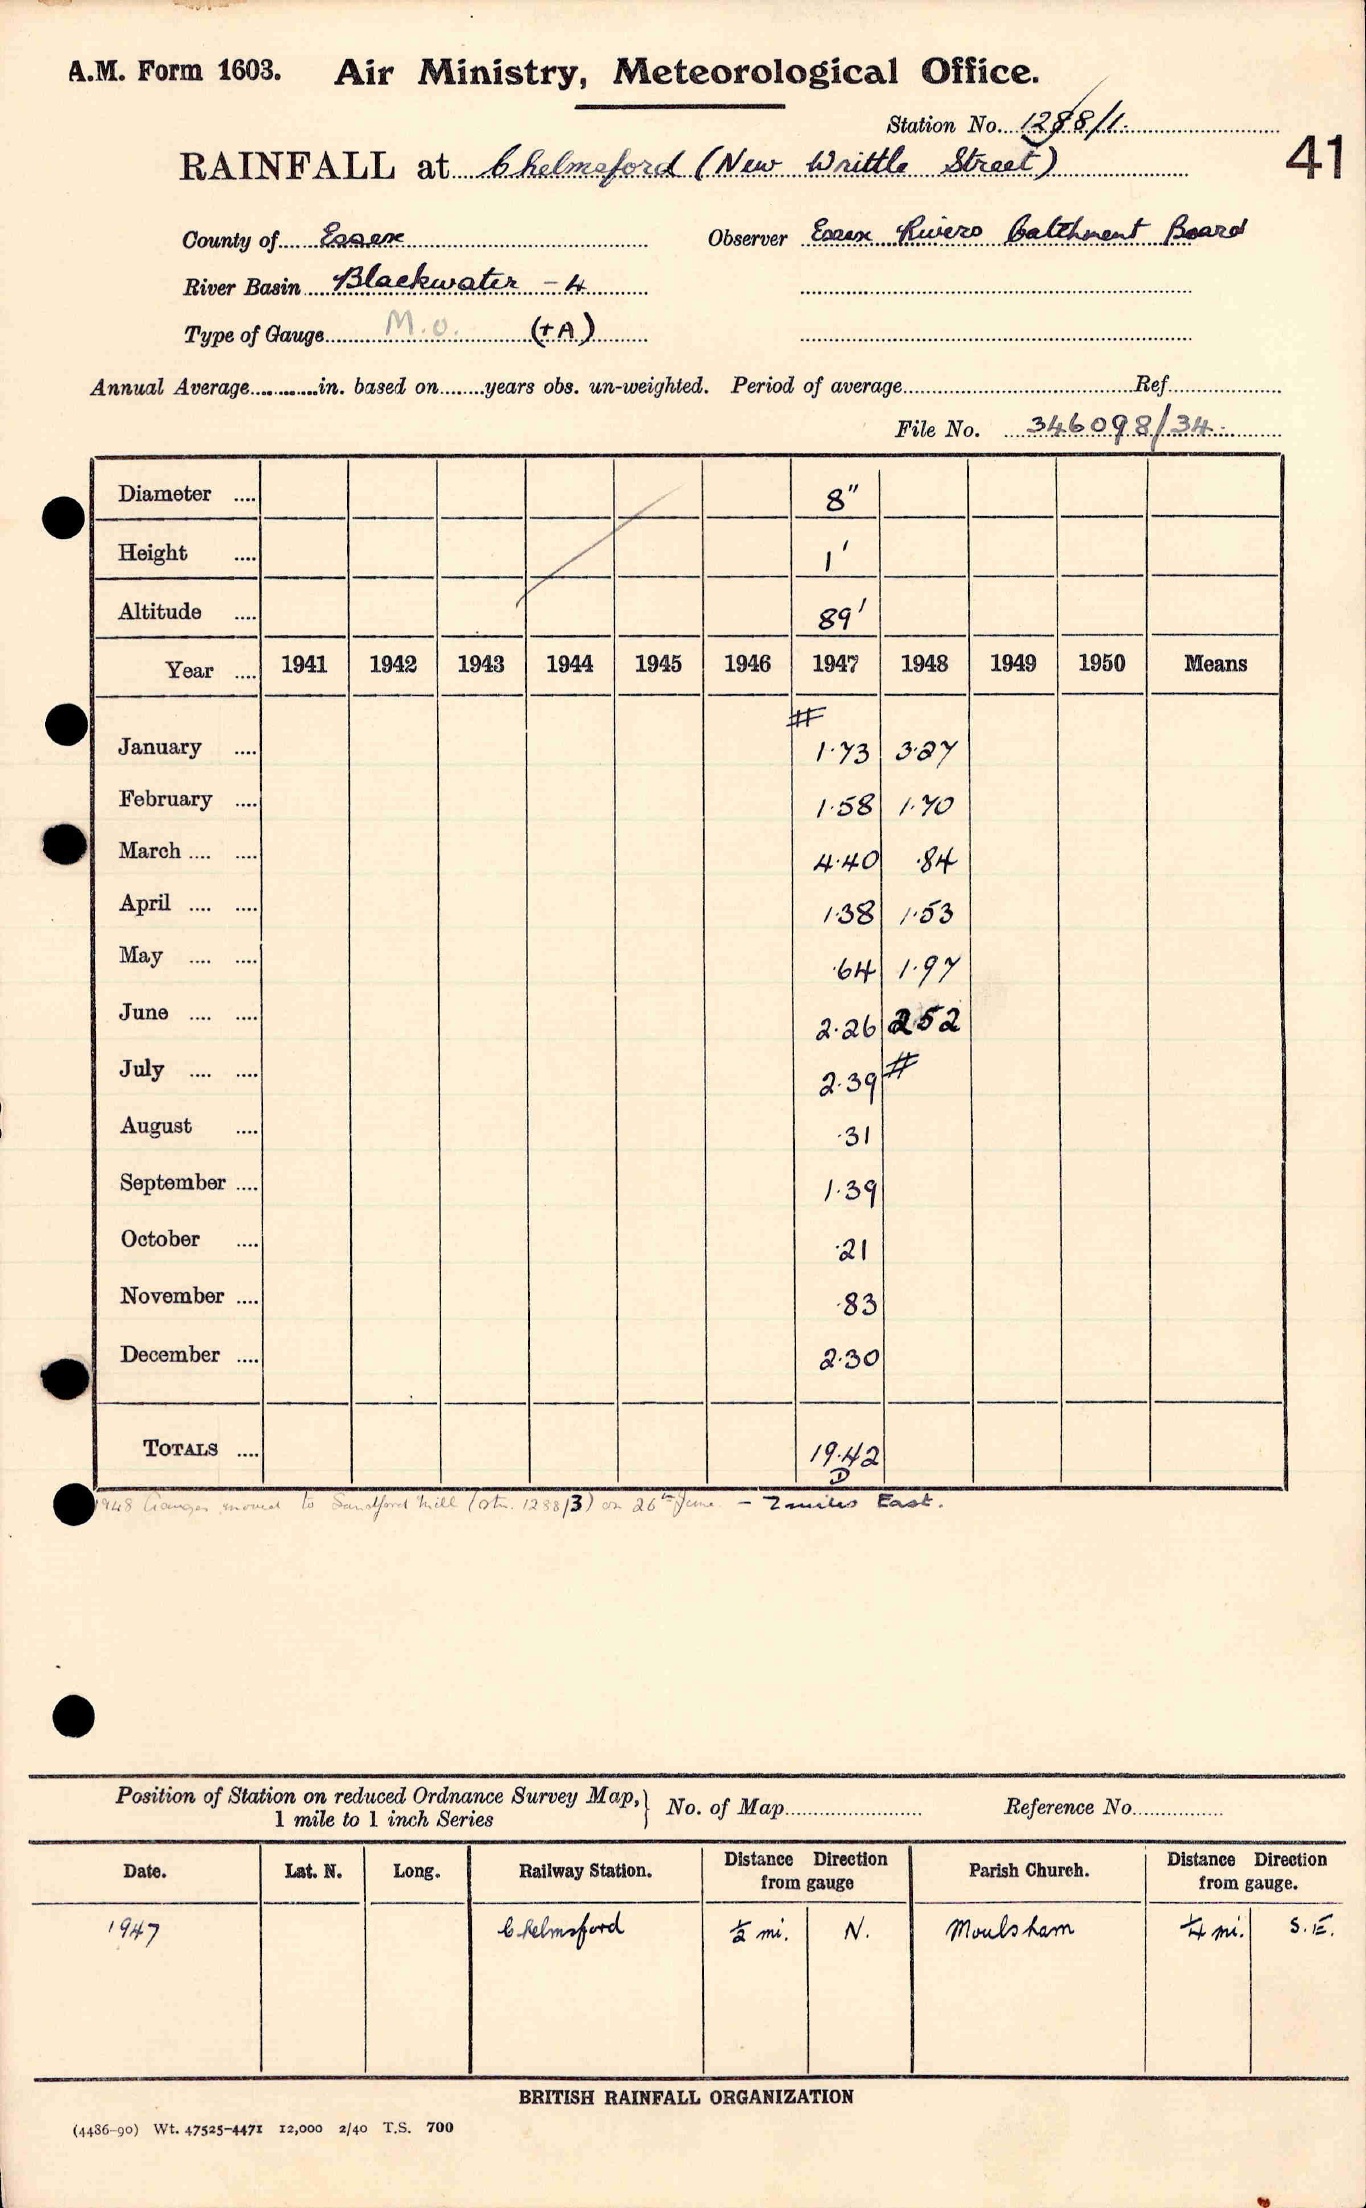 A.M. Form 1603. Air Ministry, Meteorological Office.
Station No. 1288/1.
RAINFALL at Chelmsford (New Writtle Street)
41
County of Essex Observer Essex Rivers Catchment Board
River Basin Blackwater - 4
Type of Gauge M.O. (+A)
Annual Average in. based on years obs. un-weighted. Period of average Ref
File No. 346098/34
Diameter .... 8"
Height .... 1'
Altitude .... 89'
Year .... 1941 1942 1943 1944 1945 1946 1947 1948 1949 1950 Means
#
January .... 1.73 3.27
February .... 1.58 1.70
March .... .... 4.40 .84
April .... .... 1.38 1.53
May .... .... .64 1.97
June .... .... 2.26 2.52
July .... .... 2.39 #
August .... .31
September .... 1.39
October .... .21
November .... .83
December .... 2.30
TOTALS .... 19.42
D
1948 Gauges moved to Sandford Mill (stn. 1288/3) on 26th June. - 2 miles East.
Position of Station on reduced Ordnance Survey Map, } No. of Map Reference No.
1 mile to 1 inch Series
Date. Lat. N. Long. Railway Station. Distance Direction from gauge Parish Church. Distance Direction from gauge.
1947 Chelmsford 1/2 mi. N. Moulsham 1/4 mi. S.E.
BRITISH RAINFALL ORGANIZATION
(4486-90) Wt. 47525-4471 12,000 2/40 T.S. 700